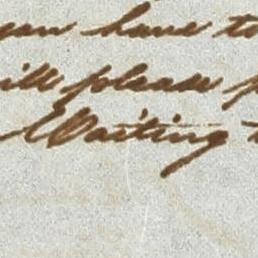 you have to
will please
Waiting